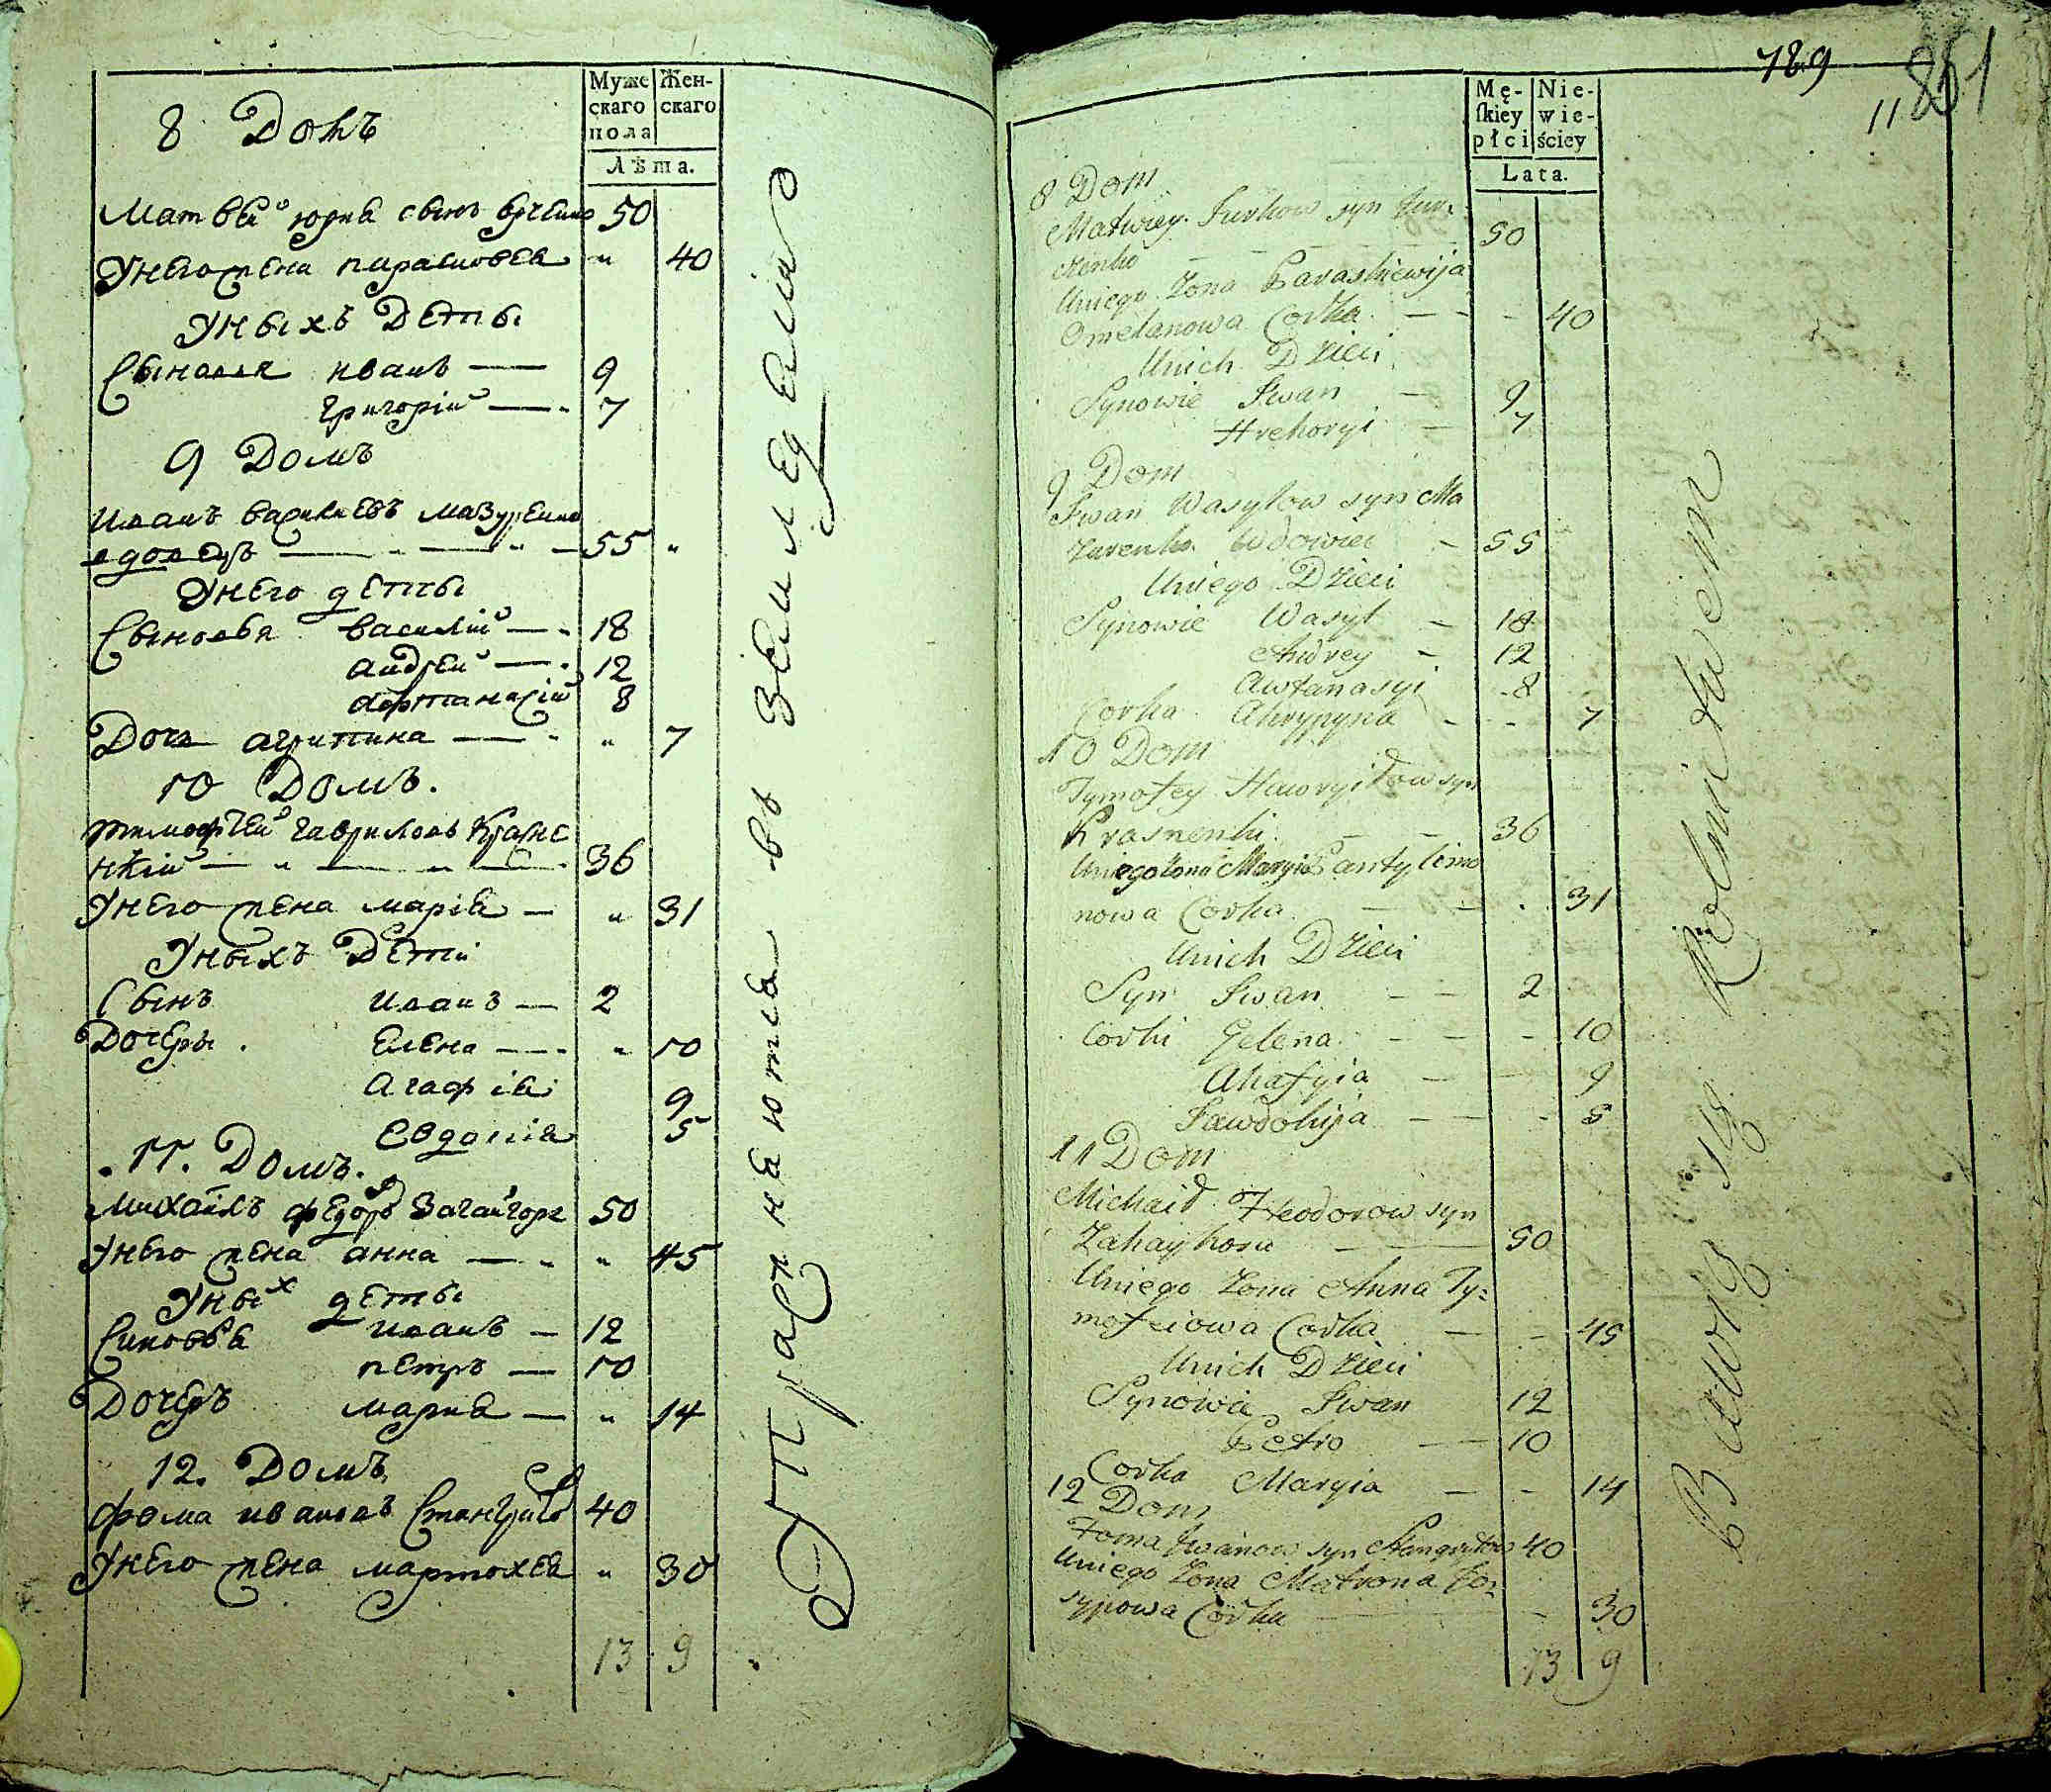 Муже
скаго
пола
Жен-
скаго
Лѣта.
8 Домъ
Матвей юрив сынъ 50
Унего жена парасковея " 40
Уныхъ Деты
Сыновя иванъ — 9
Григорій — 7
9 Домъ
Иванъ василиевъ мазуренко
вдовецъ — 55 "
Унего деты
Сыновья василий — 18
андрей — 12
афтанасій 8
Дочь агрипина — " 7
10 Домъ.
тимофѣй гавриловъ Красне
нкій — 36
Унего жена марія — " 31
Уныхъ Дети
Сынъ иванъ — 2
Дочеры елена — " 10
Агафія 9
Евдокия 5
11. Домъ.
михаилъ федоръ Загайгора 50
Унего жена анна — " 45
Уных деты
Синовья иванъ — 12
петръ — 10
Дочеръ мария — " 14
12. Домъ
фома ивановъ 40
Унего жена " 30
13 9
Упражняются въ земледелию
789
11 861
Mę-
ſkiey
płci
Nie-
wie-
ściey
Lata.
8 Dom
Matwiey Jurkow syn Jur-
czenko — 50
Uniego Zona Paraskiewija
Omelanowa Corka — 40
Unich Dzieci
Synowie Iwan — 9
Hrehoryi — 7
9 Dom
Iwan Wasylow syn Ma
zurenko Wdowiec — 55
Uniego Dzieci
Synowie Wasyl — 18
Andrey — 12
Awtanasyi 8
Corka Ahrypyna — 7
10 Dom
Tymofey Hawryiłow syn
Krasnenki — 36
Uniego Zona Maryia Pantylimo
nowa Corka — 31
Unich Dzieci
Syn Iwan — 2
Corki Gelena — 10
Ahafyia — 9
Jawdokija — 5
11 Dom
Michaił Fteodorow syn
Zahayhora — 50
Uniego Zona Anna Ty-
mofeiowa Corka — 45
Unich Dzieci
Synowie Iwan 12
Petro — 10
Corka Maryia — 14
12 Dom
Foma Iwanow syn 40
Uniego Zona Matrona Jo-
sypowa Corka — 30
13 9
Bawią się Rolnictwem